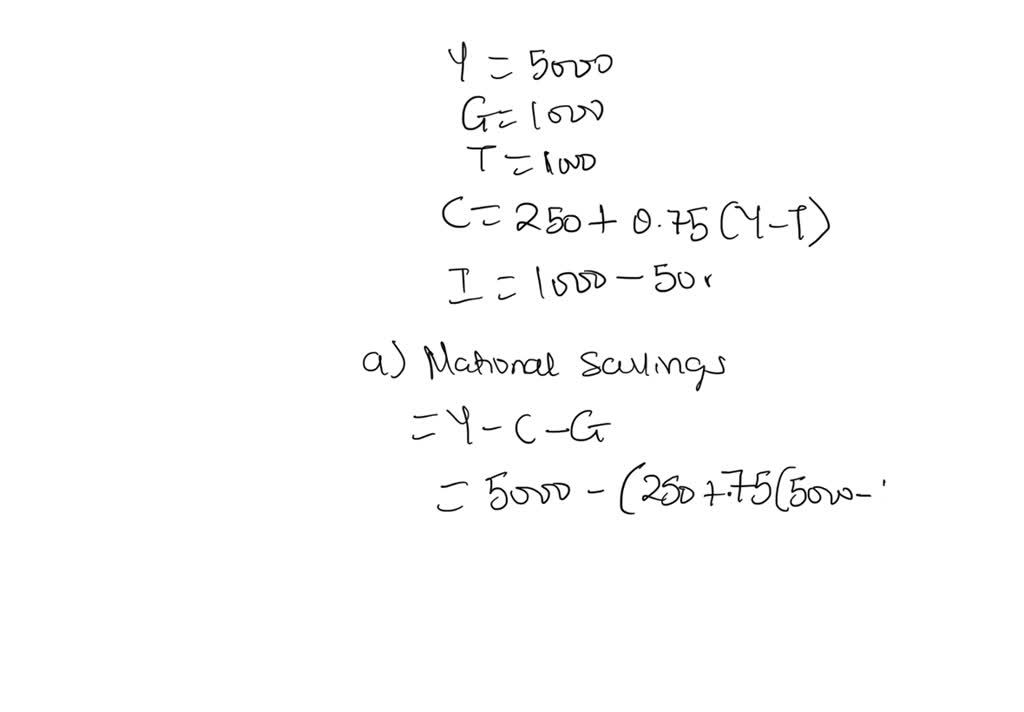 Y = 5000
G = 1000
T = 1000
C = 250 + 0.75 (Y - T)
I = 1000 - 50r
a) National Savings
= Y - C - G
= 5000 - (250 + .75(5000 -